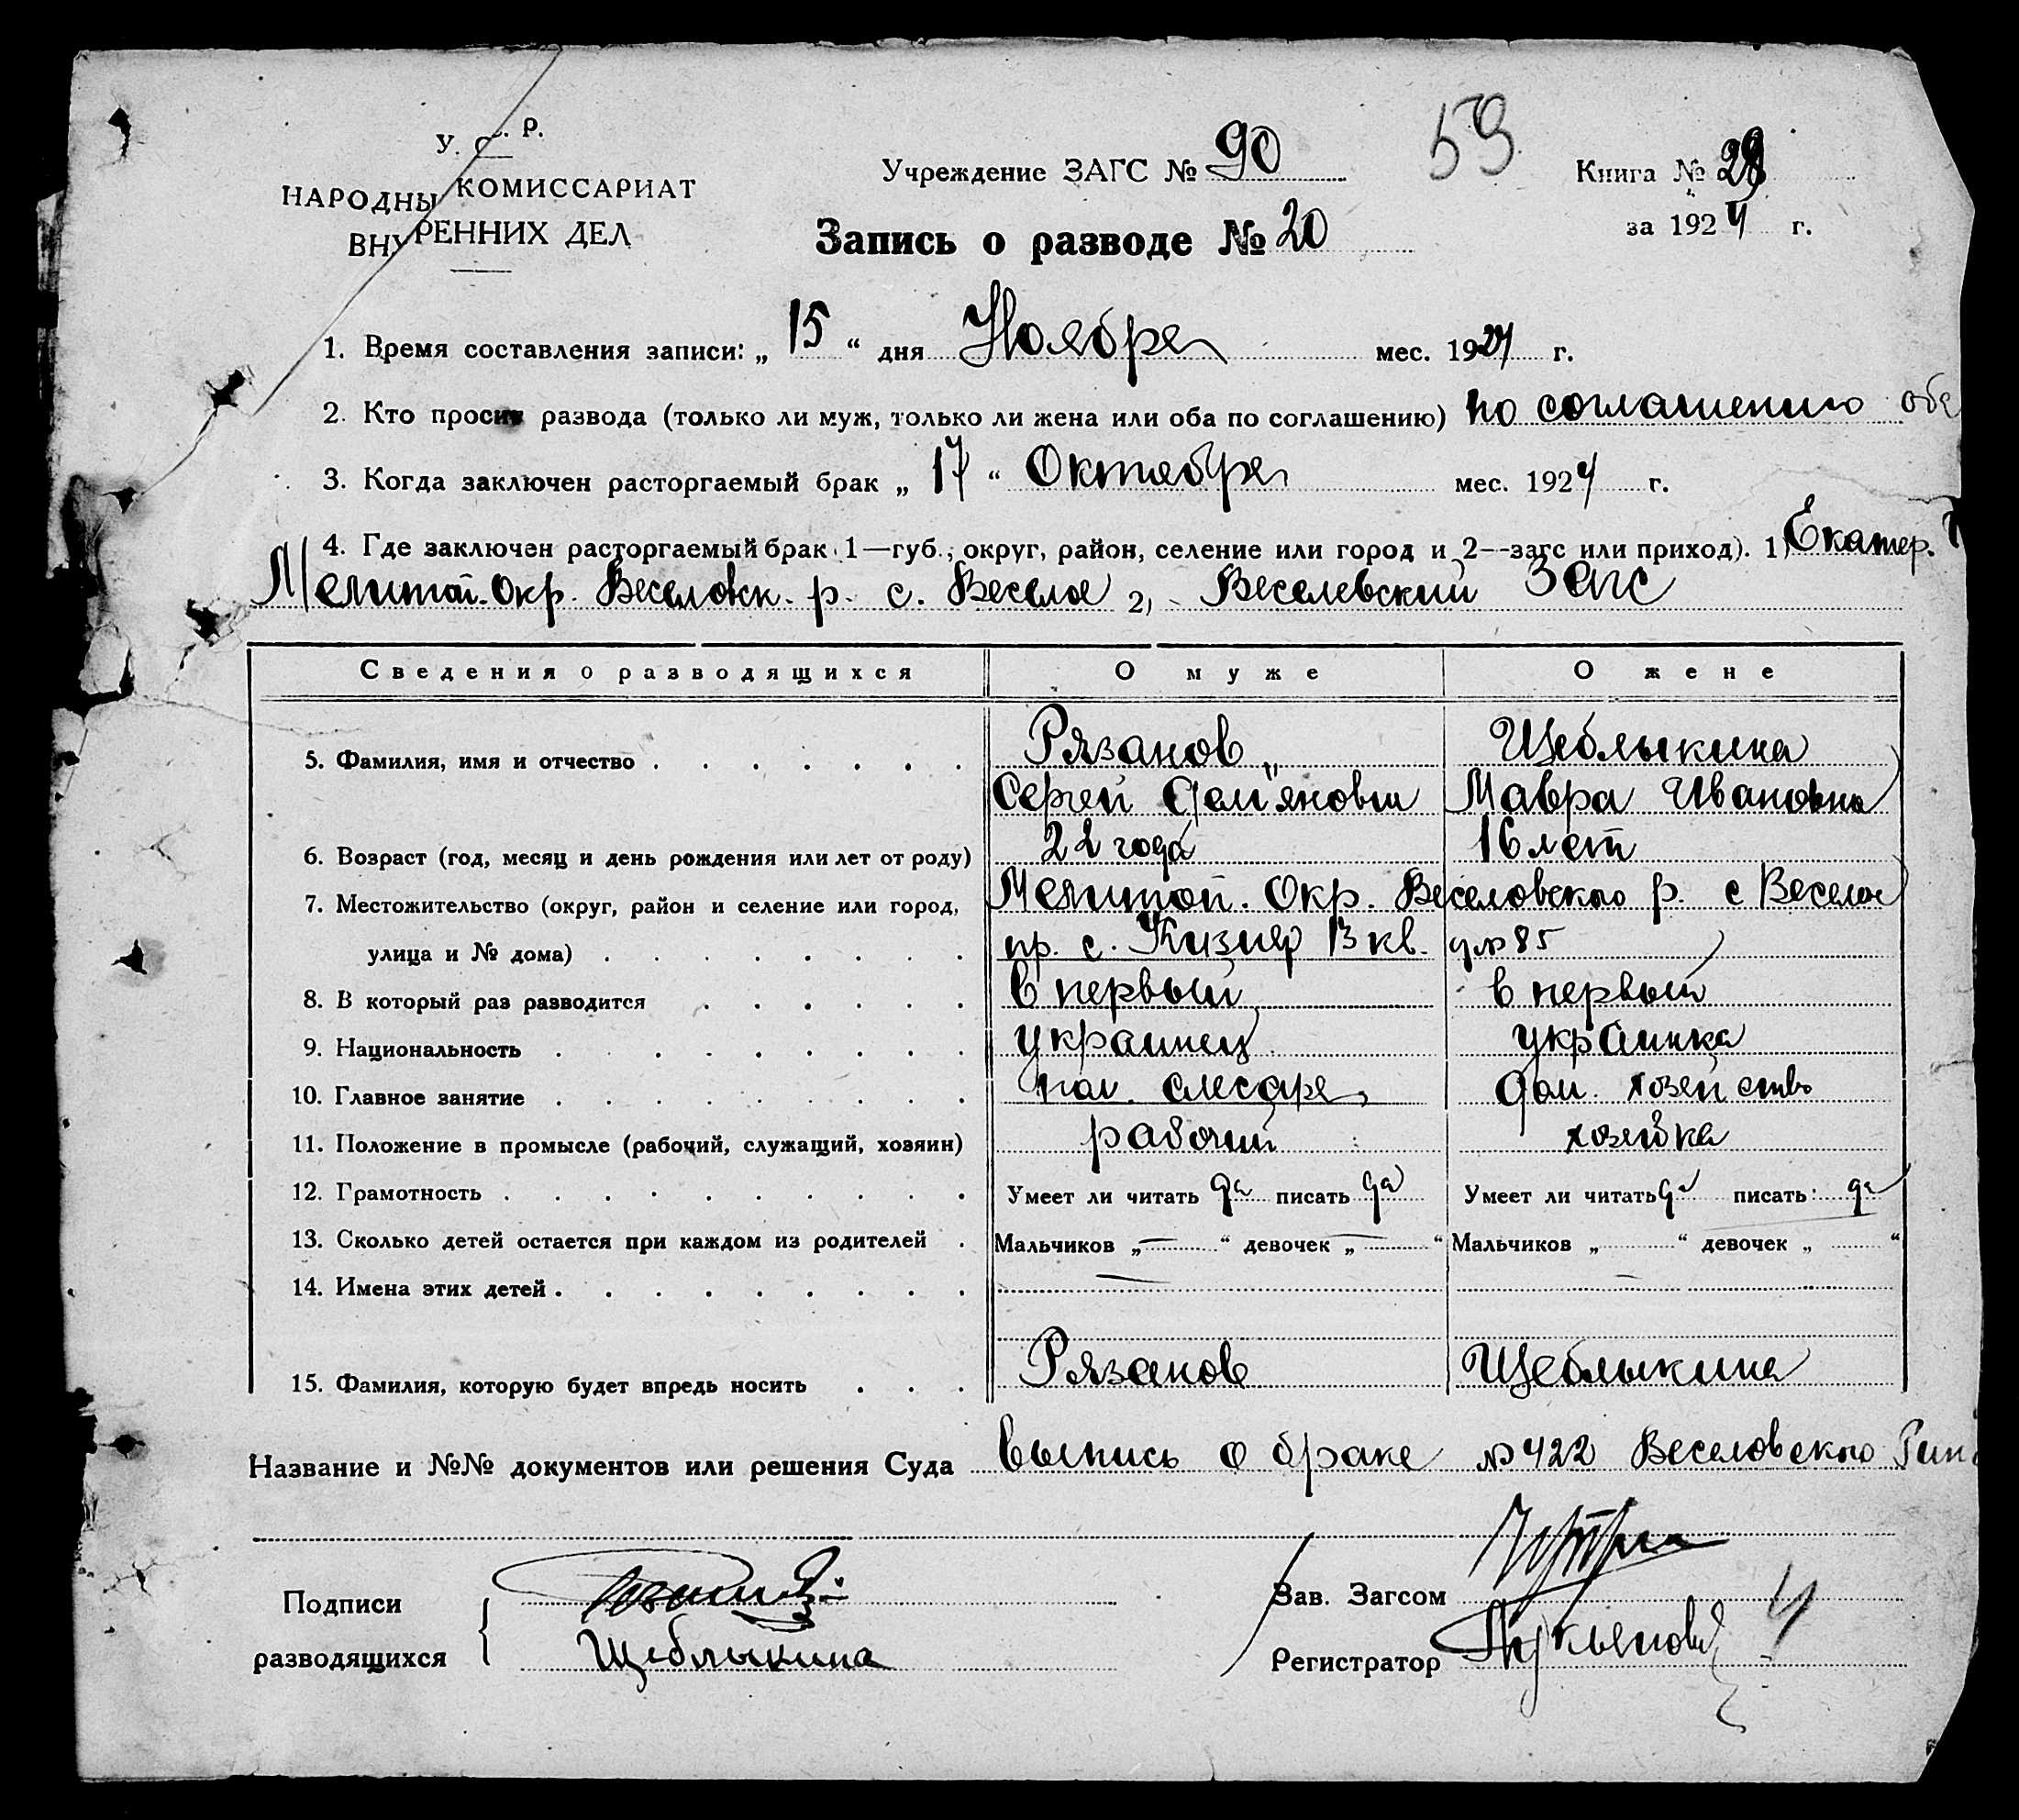 У. С. Р.
НАРОДНЫ КОМИССАРИАТ
ВНУРЕННИХ ДЕЛ
Учреждение ЗАГС № 90
59
Книга № 28
за 1924 г.
Запись о разводе № 20
1. Время составления записи: „ 15 “ дня Ноября мес. 1924 г.
2. Кто просит развода (только ли муж, только ли жена или оба по соглашению) по соглашению обе
3. Когда заключен расторгаемый брак „ 17 “ Октября мес. 1924 г.
4. Где заключен расторгаемый брак 1—губ., округ, район, селение или город и 2--загс или приход). 1) Екатер.
Мелитоп. Окр. Веселовск. р. с. Веселое 2) Веселевский Загс
Сведения о разводящихся О муже О жене
5. Фамилия, имя и отчество Рязанов Щеблыкина
Сергей Дем'янович Мавра Ивановна
6. Возраст (год, месяц и день рождения или лет от роду) 22 года 16 лет
7. Местожительство (округ, район и селение или город, Мелитоп. Окр. Веселовского р. с Веселое
улица и № дома) пр. с. 13 кв. д № 85
8. В который раз разводится в первый в первый
9. Национальность украинец украинка
10. Главное занятие слесаря дом. хозейство
11. Положение в промысле (рабочий, служащий, хозяин) рабочий хозейка
12. Грамотность Умеет ли читать да писать да Умеет ли читать да писать: да
13. Сколько детей остается при каждом из родителей Мальчиков „ — “ девочек „ — “ Мальчиков „ “ девочек „ “
14. Имена этих детей — —
15. Фамилия, которую будет впредь носить Рязанов Щеблыкина
Название и №№ документов или решения Суда выпись о браке № 422 Веселовского
Подписи
разводящихся
Щеблыкина
Зав. Загсом
Регистратор Лукьянов